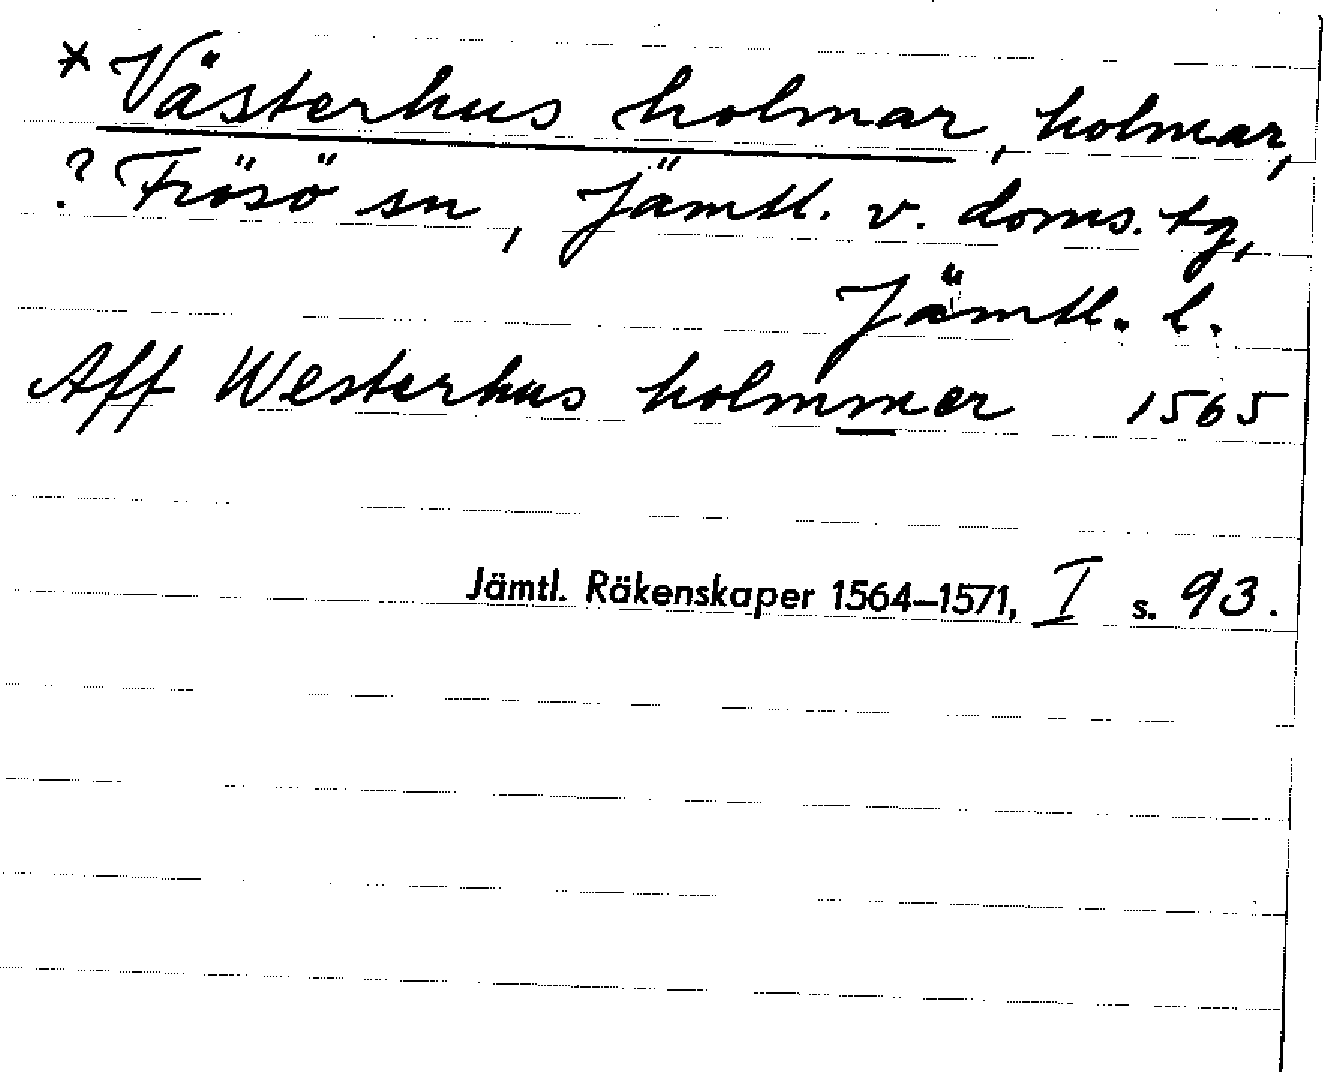 * Västerhus holmar, holmar,
? Frösö sn, Jämtl. v. doms. tg,
Jämtl. l.
Aff Westerhus holmmer 1565
Jämtl. Räkenskaper 1564–1571, I s. 93.